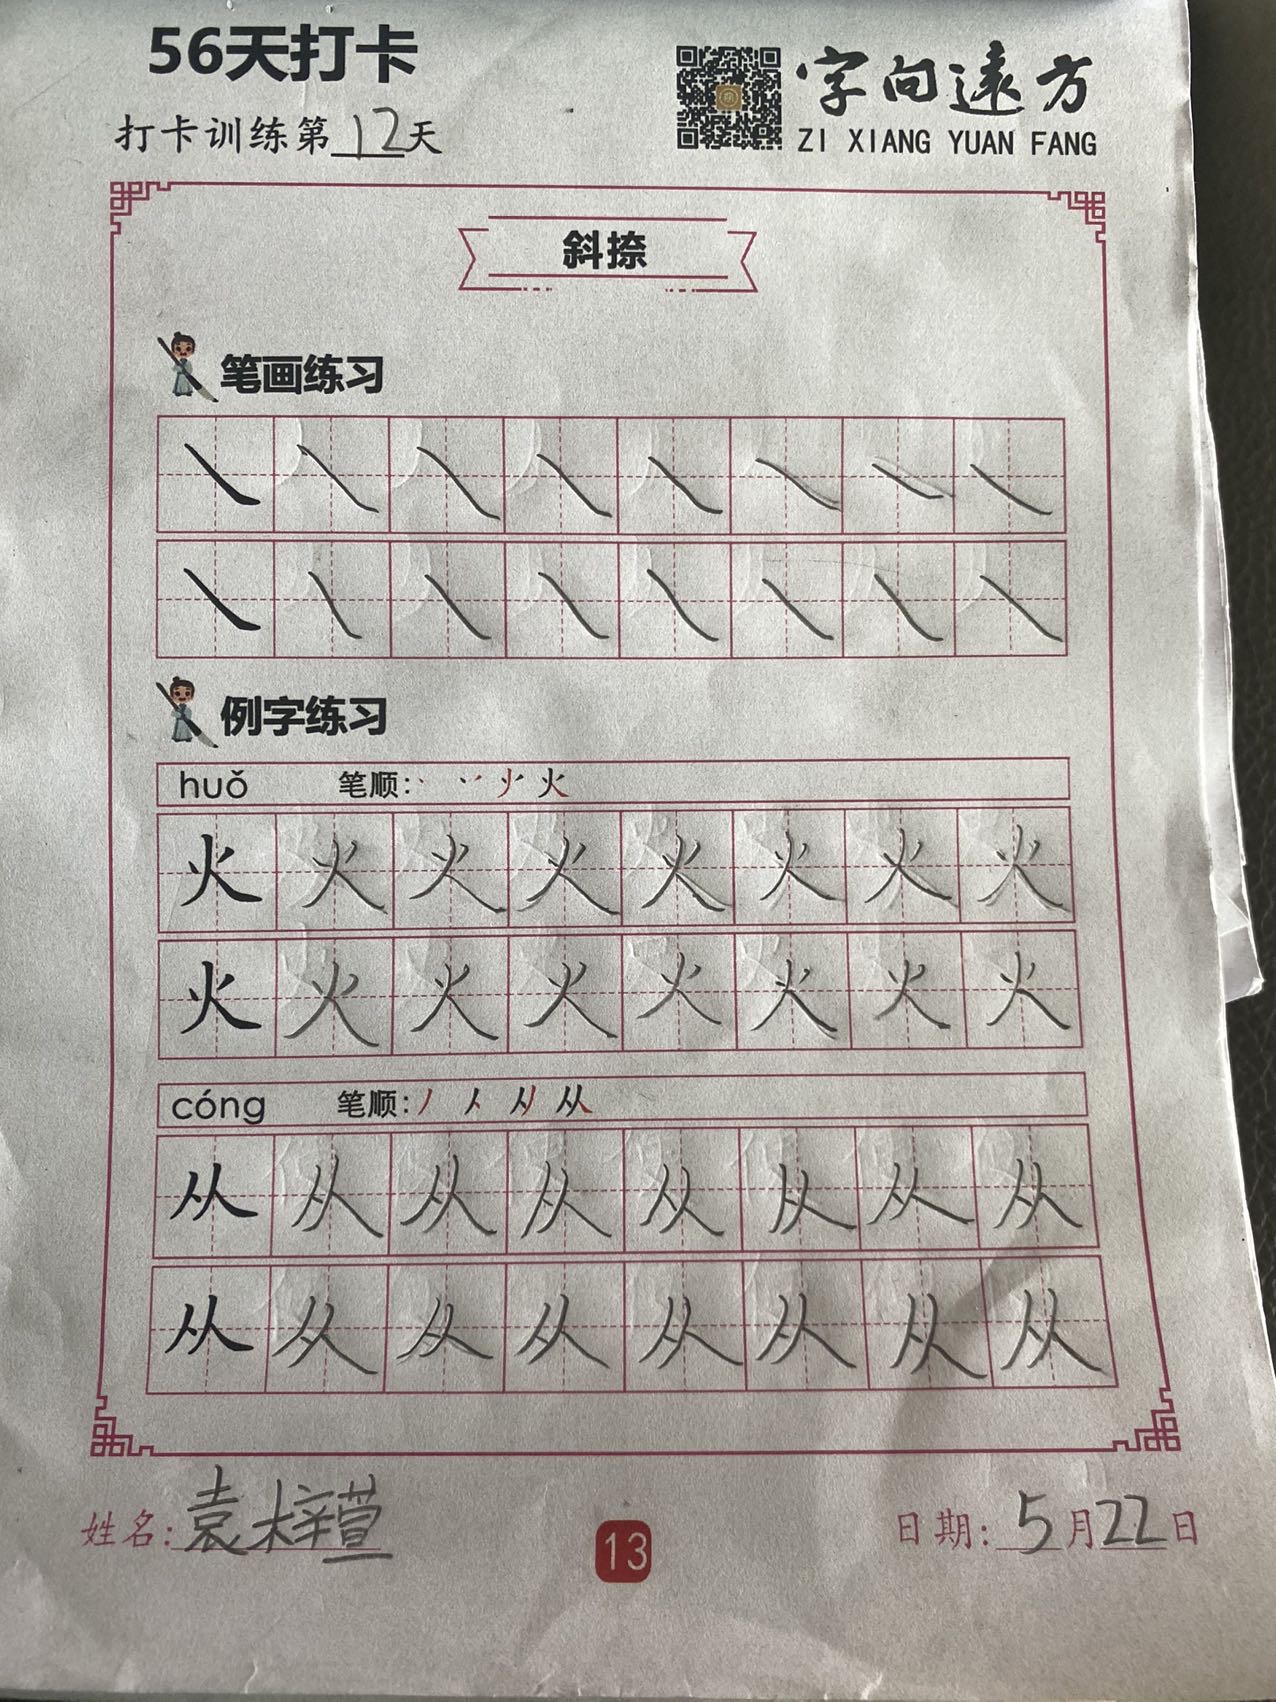 56天打卡
打卡训练第12天
字向遠方
ZI XIANG YUAN FANG
斜捺
笔画练习
例字练习
huǒ 笔顺: 丶 丷 火
火 火 火 火 火 火 火 火
火 火 火 火 火 火 火 火
cóng 笔顺: 丿 人 从
从 从 从 从 从 从 从 从
从 从 从 从 从 从 从 从
姓名: 袁梓萱
13
日期: 5月22日